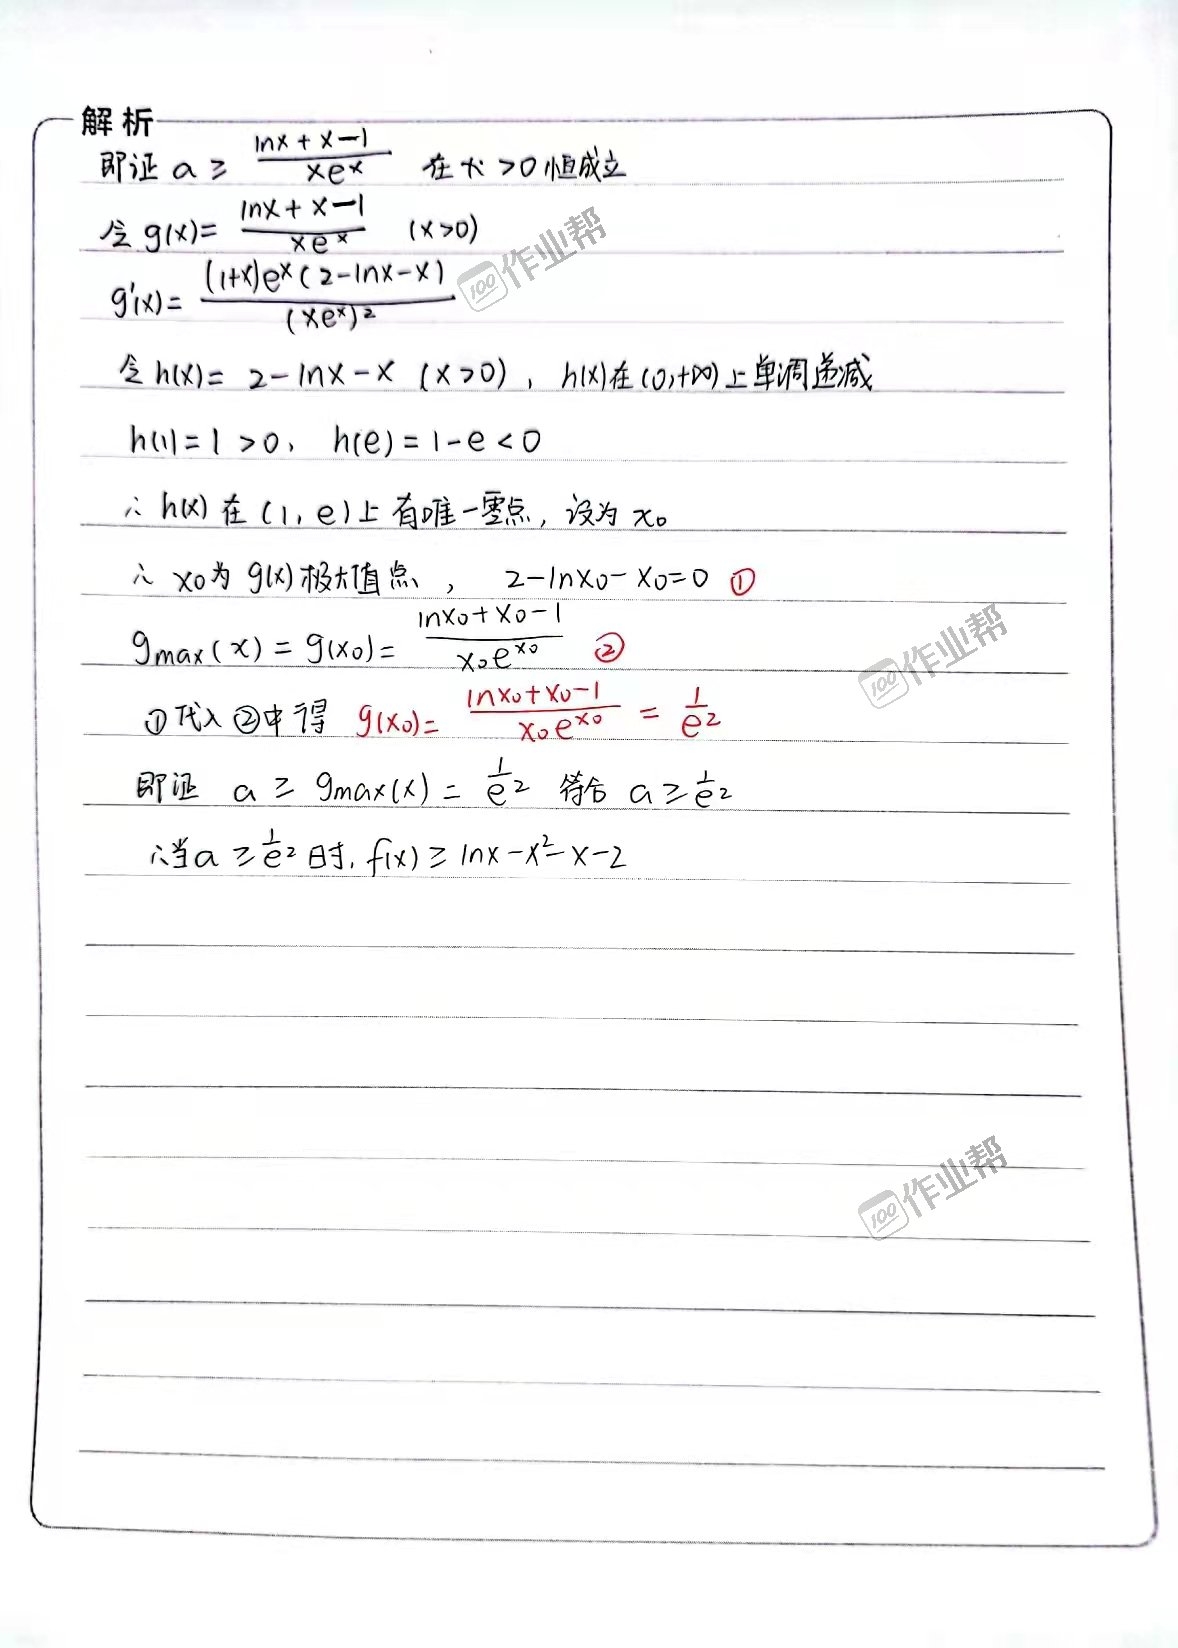 解析
即证 a ≥ (lnx + x - 1)/(xe^x) 在 x > 0 恒成立
令 g(x) = (lnx + x - 1)/(xe^x) (x>0)
100作业帮
g'(x) = ((1+x)e^x(2-lnx-x))/((xe^x)^2)
令 h(x) = 2-lnx-x (x>0), h(x)在(0,+∞)上单调递减
h(1) = 1 > 0, h(e) = 1-e < 0
∴ h(x) 在 (1, e)上有唯一零点, 设为 x₀
∴ x₀为 g(x)极大值点, 2-lnx₀-x₀=0 ①
g_max(x) = g(x₀) = (lnx₀+x₀-1)/(x₀e^x₀) ②
100作业帮
①代入②中得 g(x₀) = (lnx₀+x₀-1)/(x₀e^x₀) = 1/e²
即证 a ≥ g_max(x) = 1/e² 符合 a ≥ 1/e²
∴当a ≥ 1/e² 时, f(x) ≥ lnx-x²-x-2
100作业帮